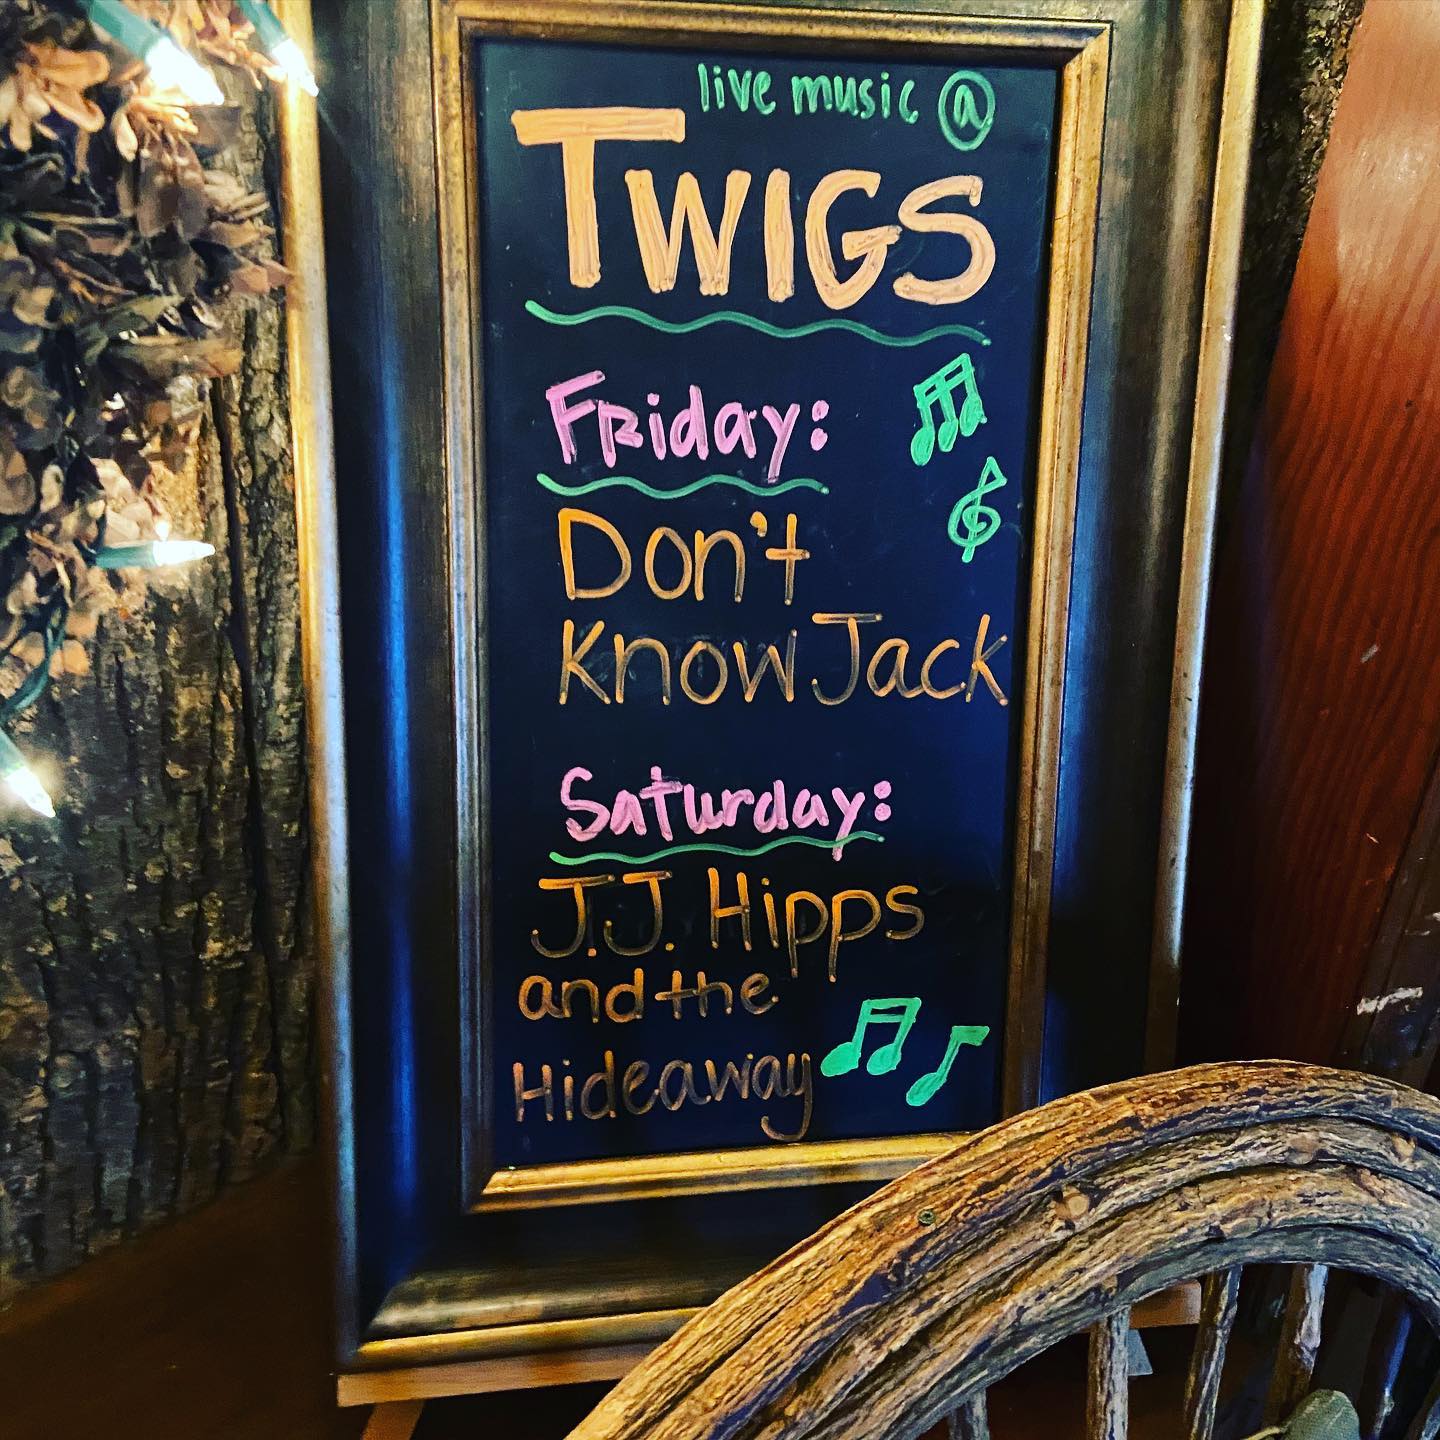 live music @
TWIGS
Friday:
Don't
Know Jack
Saturday:
J.J. Hipps
and the
Hideaway